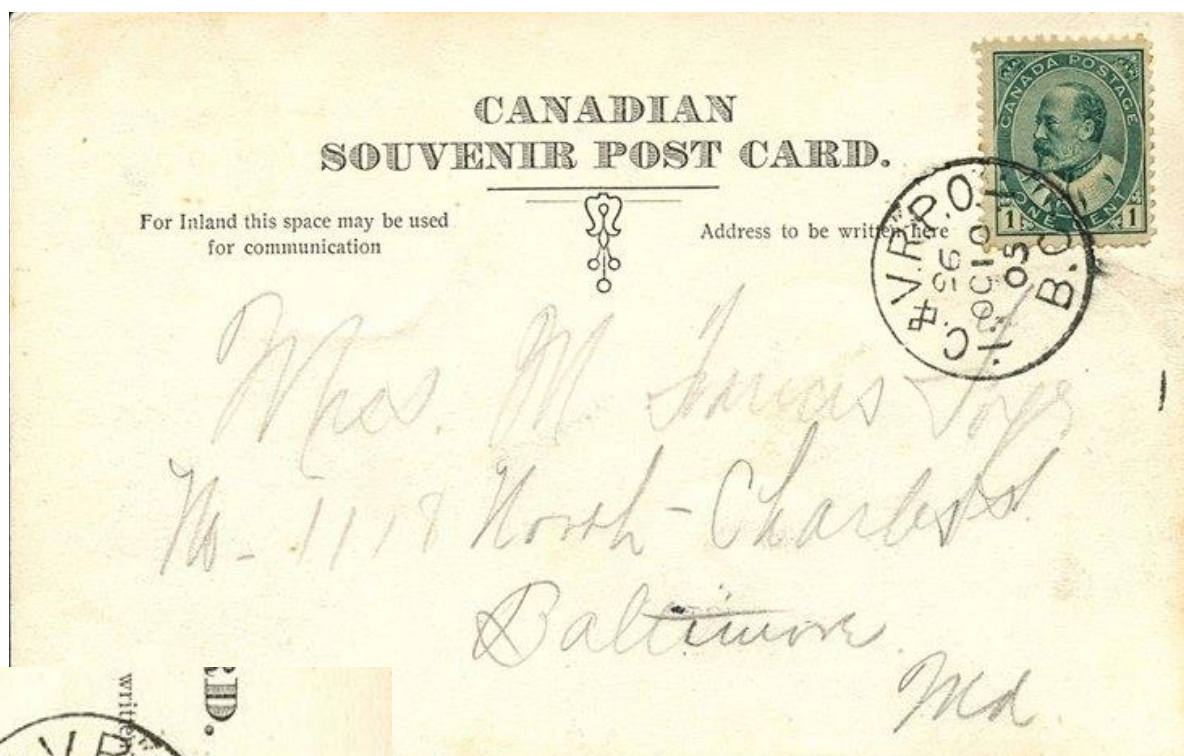 CANADIAN
SOUVENIR POST CARD.
For Inland this space may be used
for communication
Address to be written here
CANADA POSTAGE
1 ONE CENT 1
C & V. R.P.O.
B.C.
96
OC 10
05
Mrs. M.
No - 1118 North - Charles St.
Baltimore
Md.
D.
written
V.R